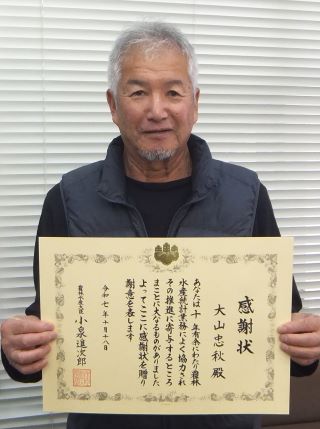 感謝状
大山忠秋殿
あなたは十年有余にわたり農林
水産統計業務によく協力され
その推進に寄与するところ
まことに大なるものがありました
よってここに感謝状を贈り
謝意を表します
令和七年十月十八日
農林水産大臣 小泉進次郎